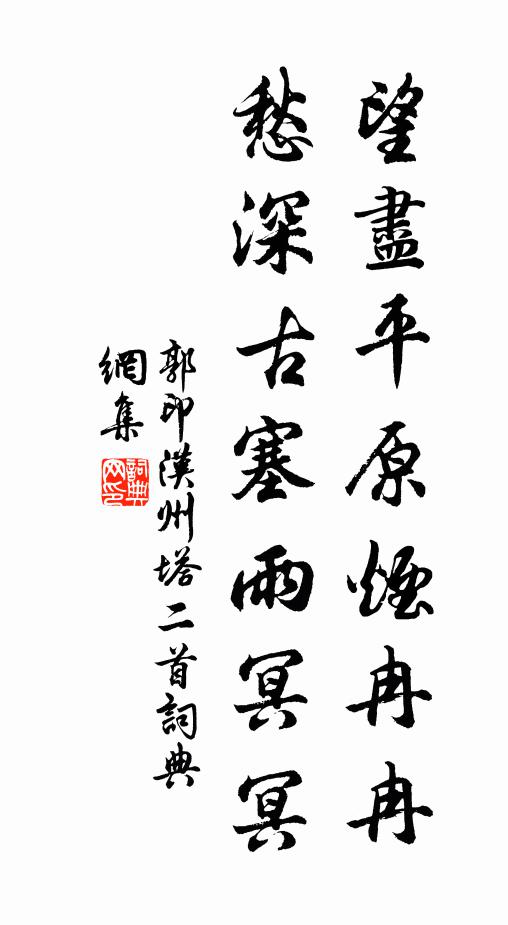 望盡平原煙冉冉
愁深古塞雨冥冥
郭印漢州塔二首詞典
網集
詞典
网印